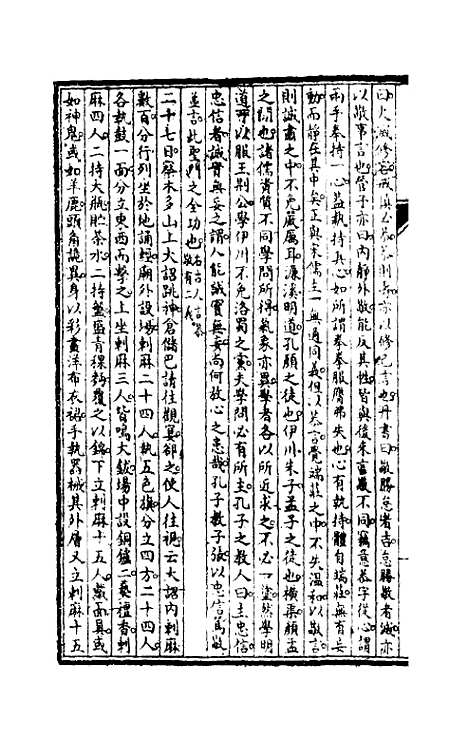 曰火滅修容戒慎必恭恭則壽亦以修己言也丹書曰敬勝怠者吉怠勝敬者滅亦
以敬事言也管子亦曰內靜外敬能反其性皆與後來言嚴不同竊意恭字從心謂
兩手奉持一心益執持其心如所謂拳拳服膺弗失也心有執持體自端莊無有妄
動而靜在其中矣正與宋儒主一無適同義但以恭言覺端莊之中不失溫和以敬言
則誠肅之中不免嚴厲耳濂溪明道孔顏之徒也伊川朱子孟子之徒也橫渠顏孟
之間也諸儒資質不同學問所得氣象亦異學者各以所近求之不必一塗然學明
道可以服王荊公學伊川不免洛蜀之黨夫學問必有所主孔子之教人曰主忠信
忠信者誠實無妄之謂人能誠實無妄尚何放心之患哉孔子教子張以忠信篤敬
並言此聖門之全功也右言人言恭敬有二義
二十七日察木多山上大詔跳神倉儲巴請往觀宴卻之使人往視云大詔內剌麻
數百分行列坐於地誦經廟外設場剌麻二十四人執五色旗分立四方二十四人
各執鼓一面分立東西而擊之上坐剌麻三人皆鳴大鈸場中設銅爐二爇檀香剌
麻四人二持大瓶貯茶水二持盤盛青稞麪覆之以錦下立剌麻十五人戴面具或
如神鬼或如羊鹿頭角詭異身以彩畫洋布衣裙手執器械其外層又立剌麻十五